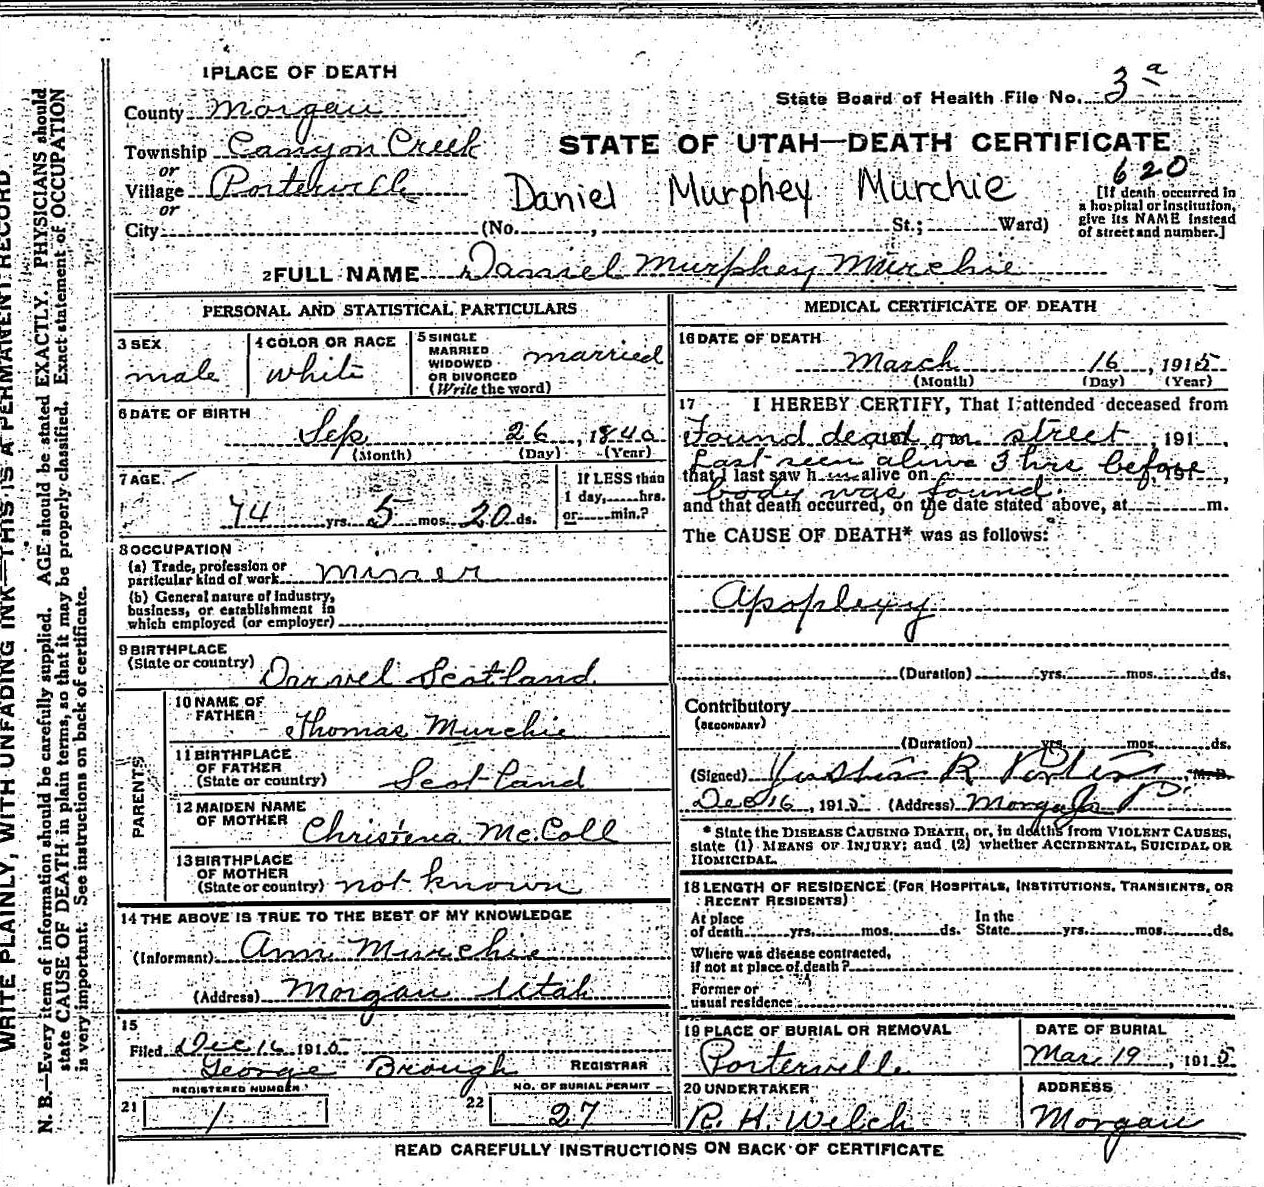 WRITE PLAINLY, WITH UNFADING INK—THIS IS A PERMANENT RECORD
N. B.—Every item of information should be carefully supplied. AGE should be stated EXACTLY. PHYSICIANS should
state CAUSE OF DEATH in plain terms, so that it may be properly classified. Exact statement of OCCUPATION
is very important. See instructions on back of certificate.
1 PLACE OF DEATH
County Morgan
Township Canyon Creek
or
Village Porterville
or
City (No. , St.; Ward)
State Board of Health File No. 3 a
STATE OF UTAH—DEATH CERTIFICATE
620
Daniel Murphey Murchie
[If death occurred in
a hospital or institution,
give its NAME instead
of street and number.]
2 FULL NAME Daniel Murphey Murchie
PERSONAL AND STATISTICAL PARTICULARS
3 SEX
male
4 COLOR OR RACE
White
5 SINGLE
MARRIED
WIDOWED
OR DIVORCED
(Write the word)
married
6 DATE OF BIRTH
Sep 26, 1840
(Month) (Day) (Year)
7 AGE
74 yrs. 5 mos. 20 ds.
If LESS than
1 day, hrs.
or min.?
8 OCCUPATION
(a) Trade, profession or
particular kind of work Minner
(b) General nature of industry,
business, or establishment in
which employed (or employer)
9 BIRTHPLACE
(State or country) Darvel Scotland
PARENTS
10 NAME OF
FATHER Thomas Murchie
11 BIRTHPLACE
OF FATHER
(State or country) Scotland
12 MAIDEN NAME
OF MOTHER Christena McColl
13 BIRTHPLACE
OF MOTHER
(State or country) not known
14 THE ABOVE IS TRUE TO THE BEST OF MY KNOWLEDGE
(Informant) Ann Murchie
(Address) Morgan Utah
15
Filed Dec 16 1915
George Brough REGISTRAR
REGISTERED NUMBER
21 1
NO. OF BURIAL PERMIT
22 27
MEDICAL CERTIFICATE OF DEATH
16 DATE OF DEATH
March 16, 1915
(Month) (Day) (Year)
17 I HEREBY CERTIFY, That I attended deceased from
Found dead on street, 191 ,
Last seen alive 3 hrs before
that I last saw h alive on , 191 ,
body was found.
and that death occurred, on the date stated above, at m.
The CAUSE OF DEATH* was as follows:
Apoplexy
(Duration) yrs. mos. ds.
Contributory
(SECONDARY)
(Duration) yrs. mos. ds.
(Signed) R M.D.
Dec 16, 1915 (Address) Morgan
* State the DISEASE CAUSING DEATH, or, in deaths from VIOLENT CAUSES,
state (1) MEANS OF INJURY; and (2) whether ACCIDENTAL, SUICIDAL OR
HOMICIDAL.
18 LENGTH OF RESIDENCE (FOR HOSPITALS, INSTITUTIONS, TRANSIENTS, OR
RECENT RESIDENTS)
At place
of death yrs. mos. ds.
In the
State yrs. mos. ds.
Where was disease contracted,
if not at place of death?
Former or
usual residence
19 PLACE OF BURIAL OR REMOVAL
Porterville
DATE OF BURIAL
Mar. 19, 1915
20 UNDERTAKER
R. H. Welch
ADDRESS
Morgan
READ CAREFULLY INSTRUCTIONS ON BACK OF CERTIFICATE